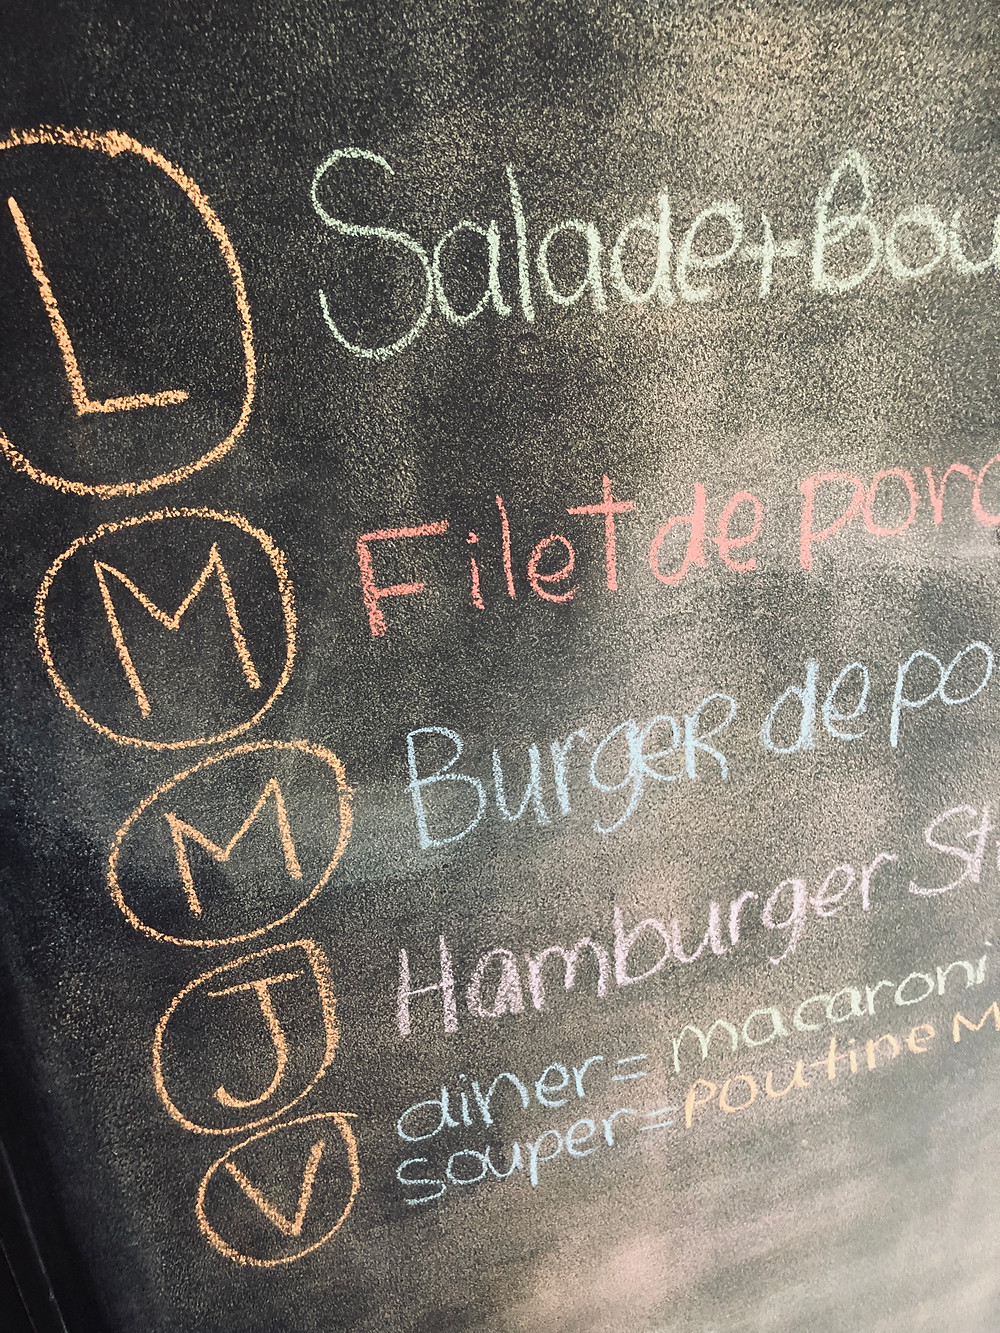 L Salade + Bou
M Filet de porc
M Burger de po
J Hamburger St
V diner = macaroni
souper = poutine M